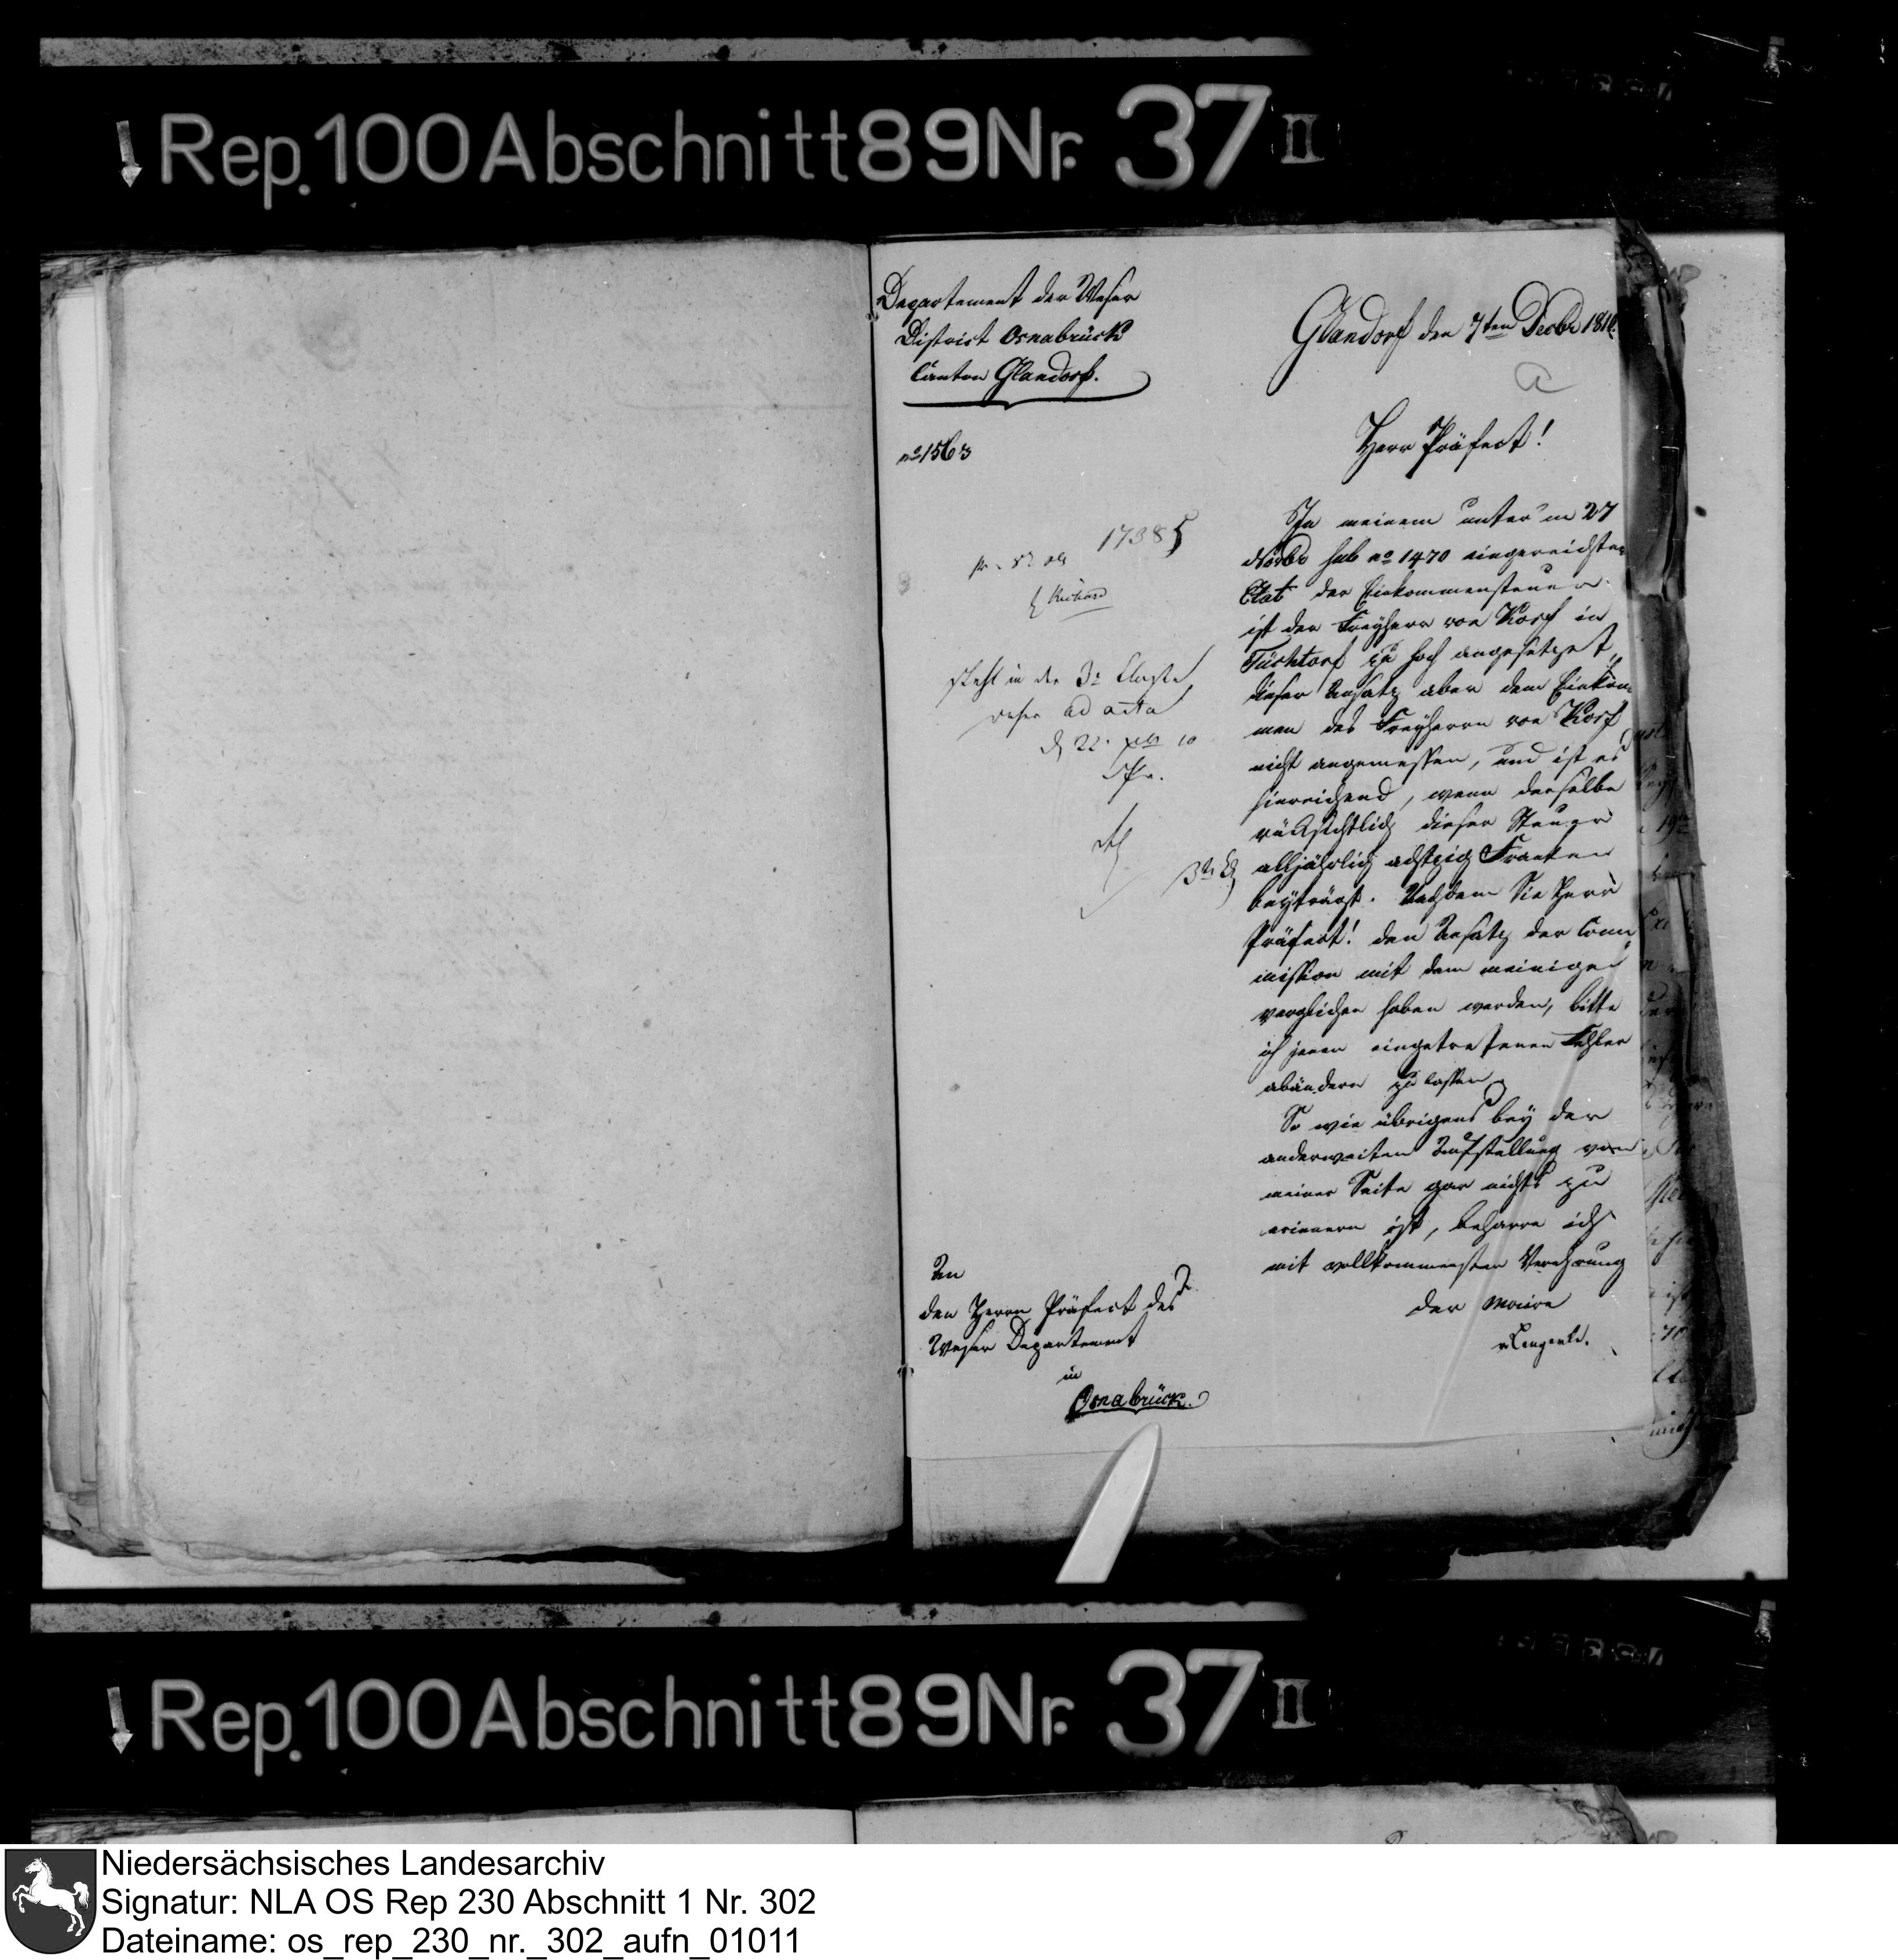 Rep. 100 Abschnitt 89 Nr. 37 II
Departement der Weser
District Osnabrück
Canton Glandorf.
Glandorf den 7ten Decbr 1810.
no 1563
Herr Präfect!
17385
Richard
steht in der 3n Classe
ad acta
In meinem unter'm 27
Novbr sub no 1470 eingereichten
Etat der Einkommensteuer
ist der Freyherr von Korf in
zu hoch angesetzet,
dieser Ansatz aber dem Einkom
men des Freyherrn von Korf
nicht angemessen, und ist es
hinreichend, wenn derselbe
rücksichtlich dieser Steuer
alljährlich achtzig Franken
beyträgt. Nachdem Sie Herr
Präfect! den Ansatz der Com
mission mit dem meinigen
verglichen haben werden, bitte
ich jenen eingetretenen Fehler
abändern zu lassen.
So wie übrigens bey der
anderweiten Aufstellung von
meiner Seite gar nichts zu
erinnern ist, beharre ich
mit vollkommenster Verehrung
der Maire
An
den Herrn Präfect des
Weser Departement
in
Osnabrück.
Rep. 100 Abschnitt 89 Nr. 37 II
Niedersächsisches Landesarchiv
Signatur: NLA OS Rep 230 Abschnitt 1 Nr. 302
Dateiname: os_rep_230_nr._302_aufn_01011